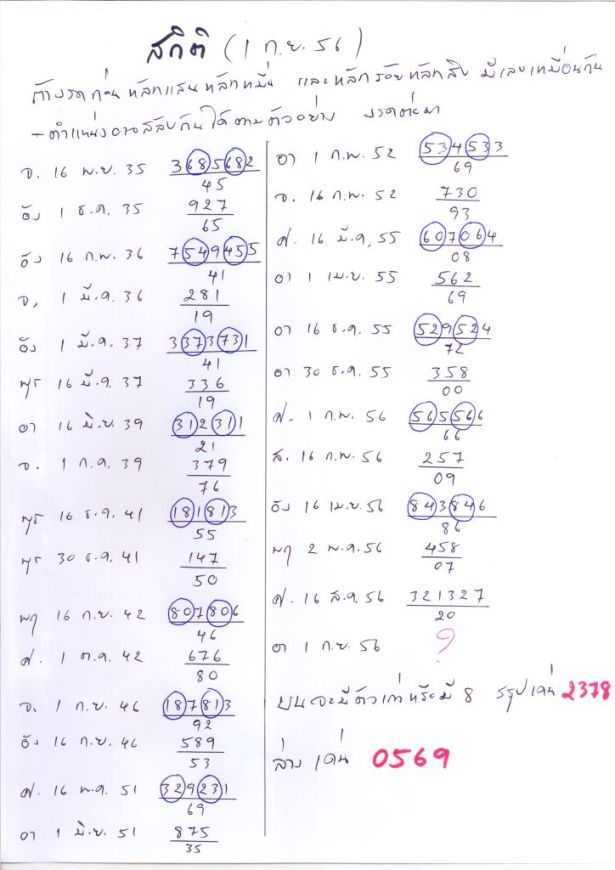 สถิติ (1 ก.ย. 56)
ถ้างวดก่อนหลักแสนหลักหมื่น และหลักร้อยหลักสิบ มีเลขเหมือนกัน
- ตำแหน่งอาจสลับกันได้ตามตัวอย่าง งวดต่อมา
จ. 16 พ.ย. 35 368682
45
อัง 1 ธ.ค. 35 927
65
อัง 16 ก.พ. 36 7549455
41
จ. 1 มี.ค. 36 281
19
อัง 1 มี.ค. 37 3373731
41
พุธ 16 มี.ค. 37 336
19
อา 16 มิ.ย. 39 312311
21
จ. 1 ก.ค. 39 379
76
พุธ 16 ธ.ค. 41 181813
55
พุธ 30 ธ.ค. 41 147
50
พฤ 16 ก.ย. 42 807806
46
ศ. 1 ต.ค. 42 676
80
จ. 1 ก.ย. 46 187813
92
อัง 16 ก.ย. 46 589
53
ศ. 16 พ.ค. 51 329231
69
อา 1 มิ.ย. 51 875
35
อา 1 ก.พ. 52 534533
69
จ. 16 ก.พ. 52 730
93
ศ. 16 มี.ค. 55 607064
08
อา 1 เม.ย. 55 562
69
อา 16 ธ.ค. 55 529524
72
อา 30 ธ.ค. 55 358
00
ศ. 1 ก.พ. 56 565566
66
ส. 16 ก.พ. 56 257
09
อัง 16 เม.ย. 56 843846
86
พฤ 2 พ.ค. 56 458
07
ศ. 16 ส.ค. 56 321327
20
อา 1 ก.ย. 56 ?
บนจะมีตัวเก่าหรือมี 8 สรุปเด่น 2378
ล่างเด่น 0569